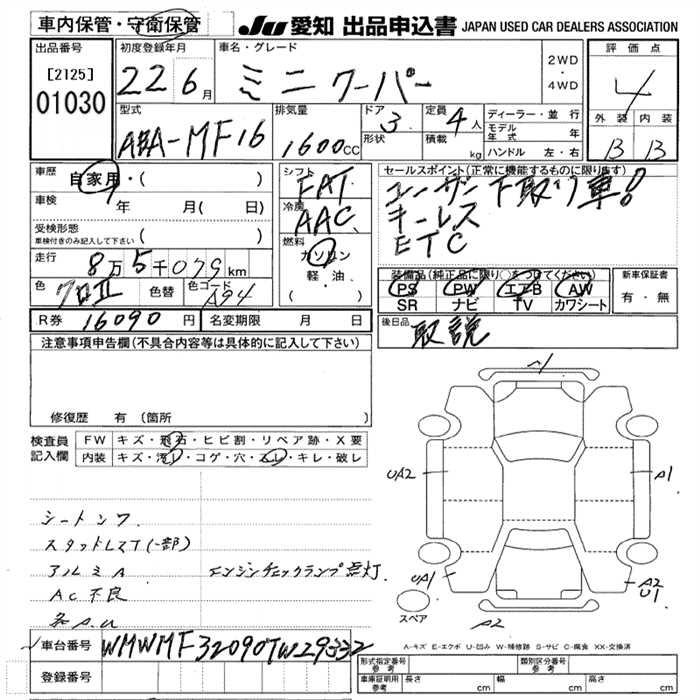 車内保管・守衛保管
JU 愛知 出品申込書 JAPAN USED CAR DEALERS ASSOCIATION
出品番号
[2125]
01030
初度登録年月
22 6月
車名・グレード
ミニクーパー
2WD
・
4WD
評価点
4
外装 内装
B B
型式
ABA-MF16
排気量
1600cc
ドア
3
形状
定員
4人
積載
kg
ディーラー・並行
モデル年式 年
ハンドル 左・右
車歴
自家用・( )
車検
年 月( 日)
受検形態
車検付きのみ記入して下さい
( )
走行
8万5千079km
色
クロⅡ
色替
色コード
A94
シフト
FAT
冷房
AAC
燃料
ガソリン
軽・油
( )
セールスポイント(正常に機能するものに限ります)
ユーザー下取り車!
キーレス
ETC
装備品(純正品に限り○をつけてください)
PS PW エアB AW
SR ナビ TV カワシート
新車保証書
有・無
後日品
取説
R券 16090円 名変期限 月 日
注意事項申告欄(不具合内容等は具体的に記入して下さい)
修復歴 有(箇所 )
検査員記入欄
FW キズ・飛石・ヒビ割・リペア跡・X要
内装 キズ・汚レ・コゲ・穴・スレ・キレ・破レ
シートシワ
スタッドレスT(一部)
アルミA
エンジンチェックランプ点灯
AC不良
各A.U
A1
UA2
A1
UA1
A2
U1
A2
スペア
A-キズ E-エクボ U-凹み W-補修跡 S-サビ C-腐食 XX-交換済
車台番号 WMWMF32090TW29332
登録番号
型式指定番号
参考
類別区分番号
参考
車庫証明用
参考
長さ cm 幅 cm 高さ cm